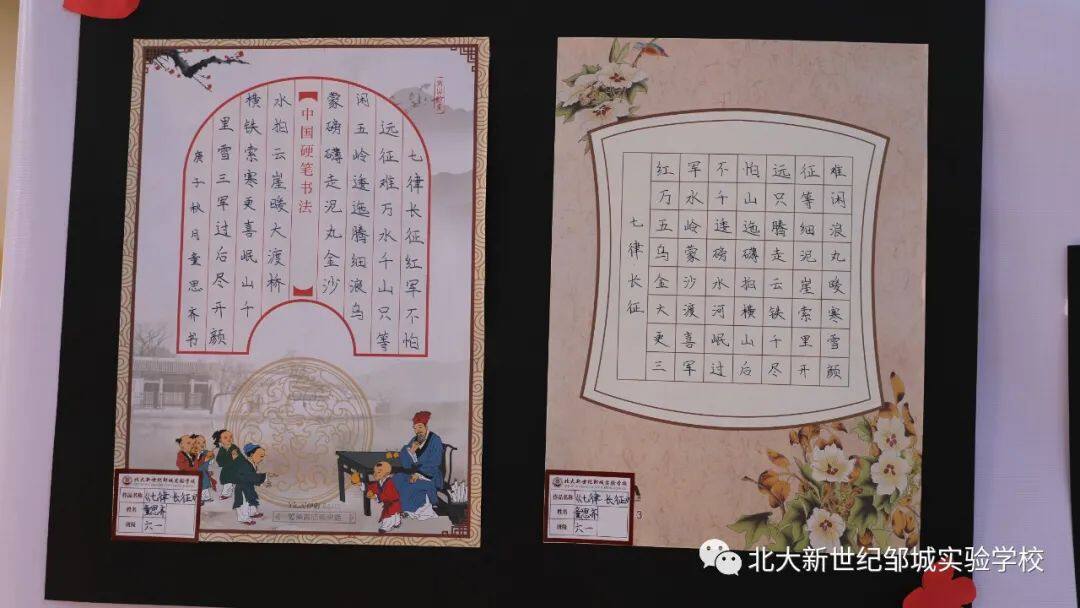 七律长征红军不怕
远征难万水千山只等
闲五岭逶迤腾细浪乌
蒙磅礴走泥丸金沙
【中国硬笔书法】
水拍云崖暖大渡桥
横铁索寒更喜岷山千
里雪三军过后尽开颜
庚子秋月童思齐书
北大新世纪邹城实验学校
作品名称 《七律 长征》
姓名 童思齐
班级 六一
七律长征
红军不怕远征难
万水千山只等闲
五岭逶迤腾细浪
乌蒙磅礴走泥丸
金沙水拍云崖暖
大渡河横铁索寒
更喜岷山千里雪
三军过后尽开颜
北大新世纪邹城实验学校
作品名称 《七律 长征》
姓名 童思齐
班级 六一
3
北大新世纪邹城实验学校